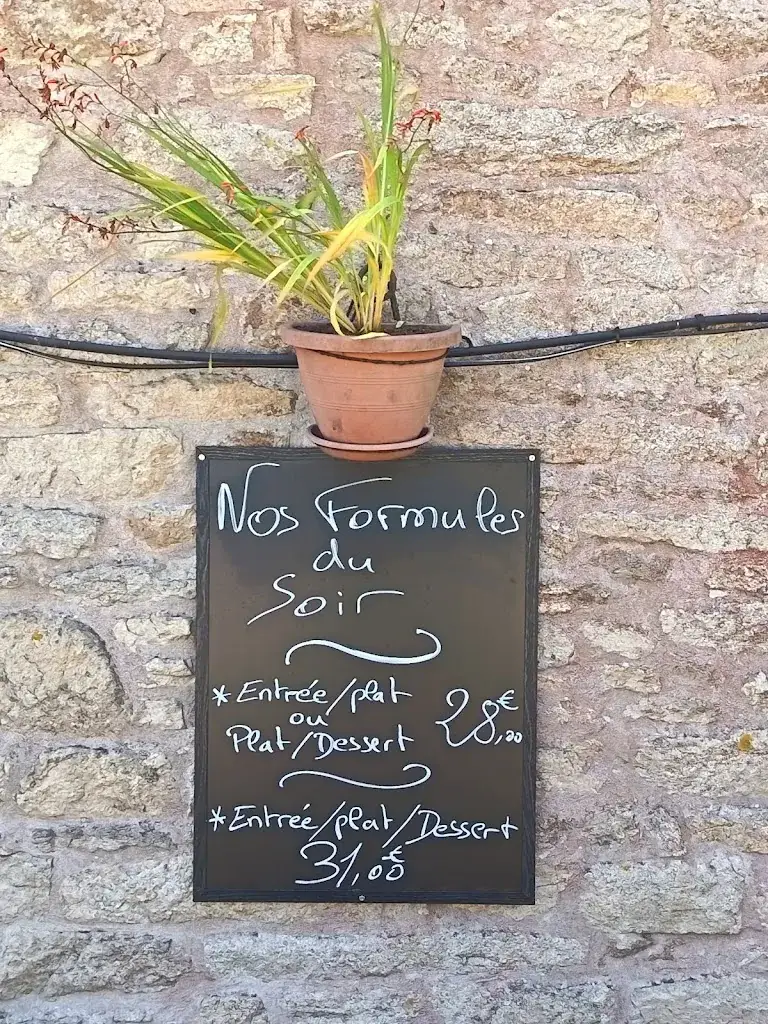 Nos Formules
du
Soir
*Entrée/plat
ou
Plat/Dessert 28,00€
*Entrée/plat/Dessert
31,00€